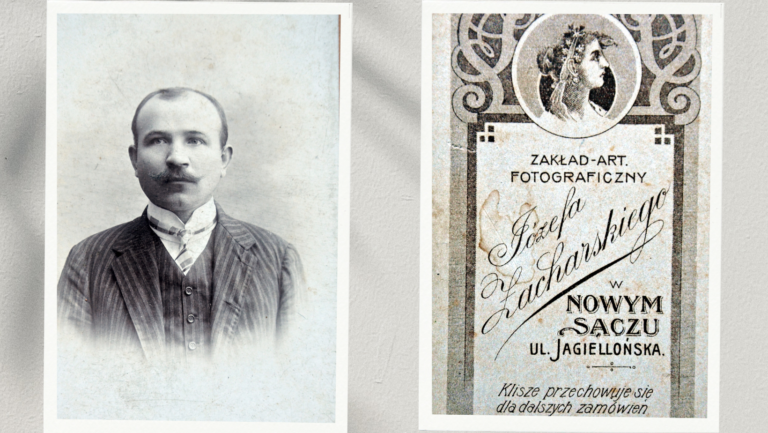 ZAKŁAD-ART.
FOTOGRAFICZNY
Józefa
Zacharskiego
W
NOWYM
SĄCZU
UL. JAGIELLOŃSKA.
Klisze przechowuje się
dla dalszych zamówień